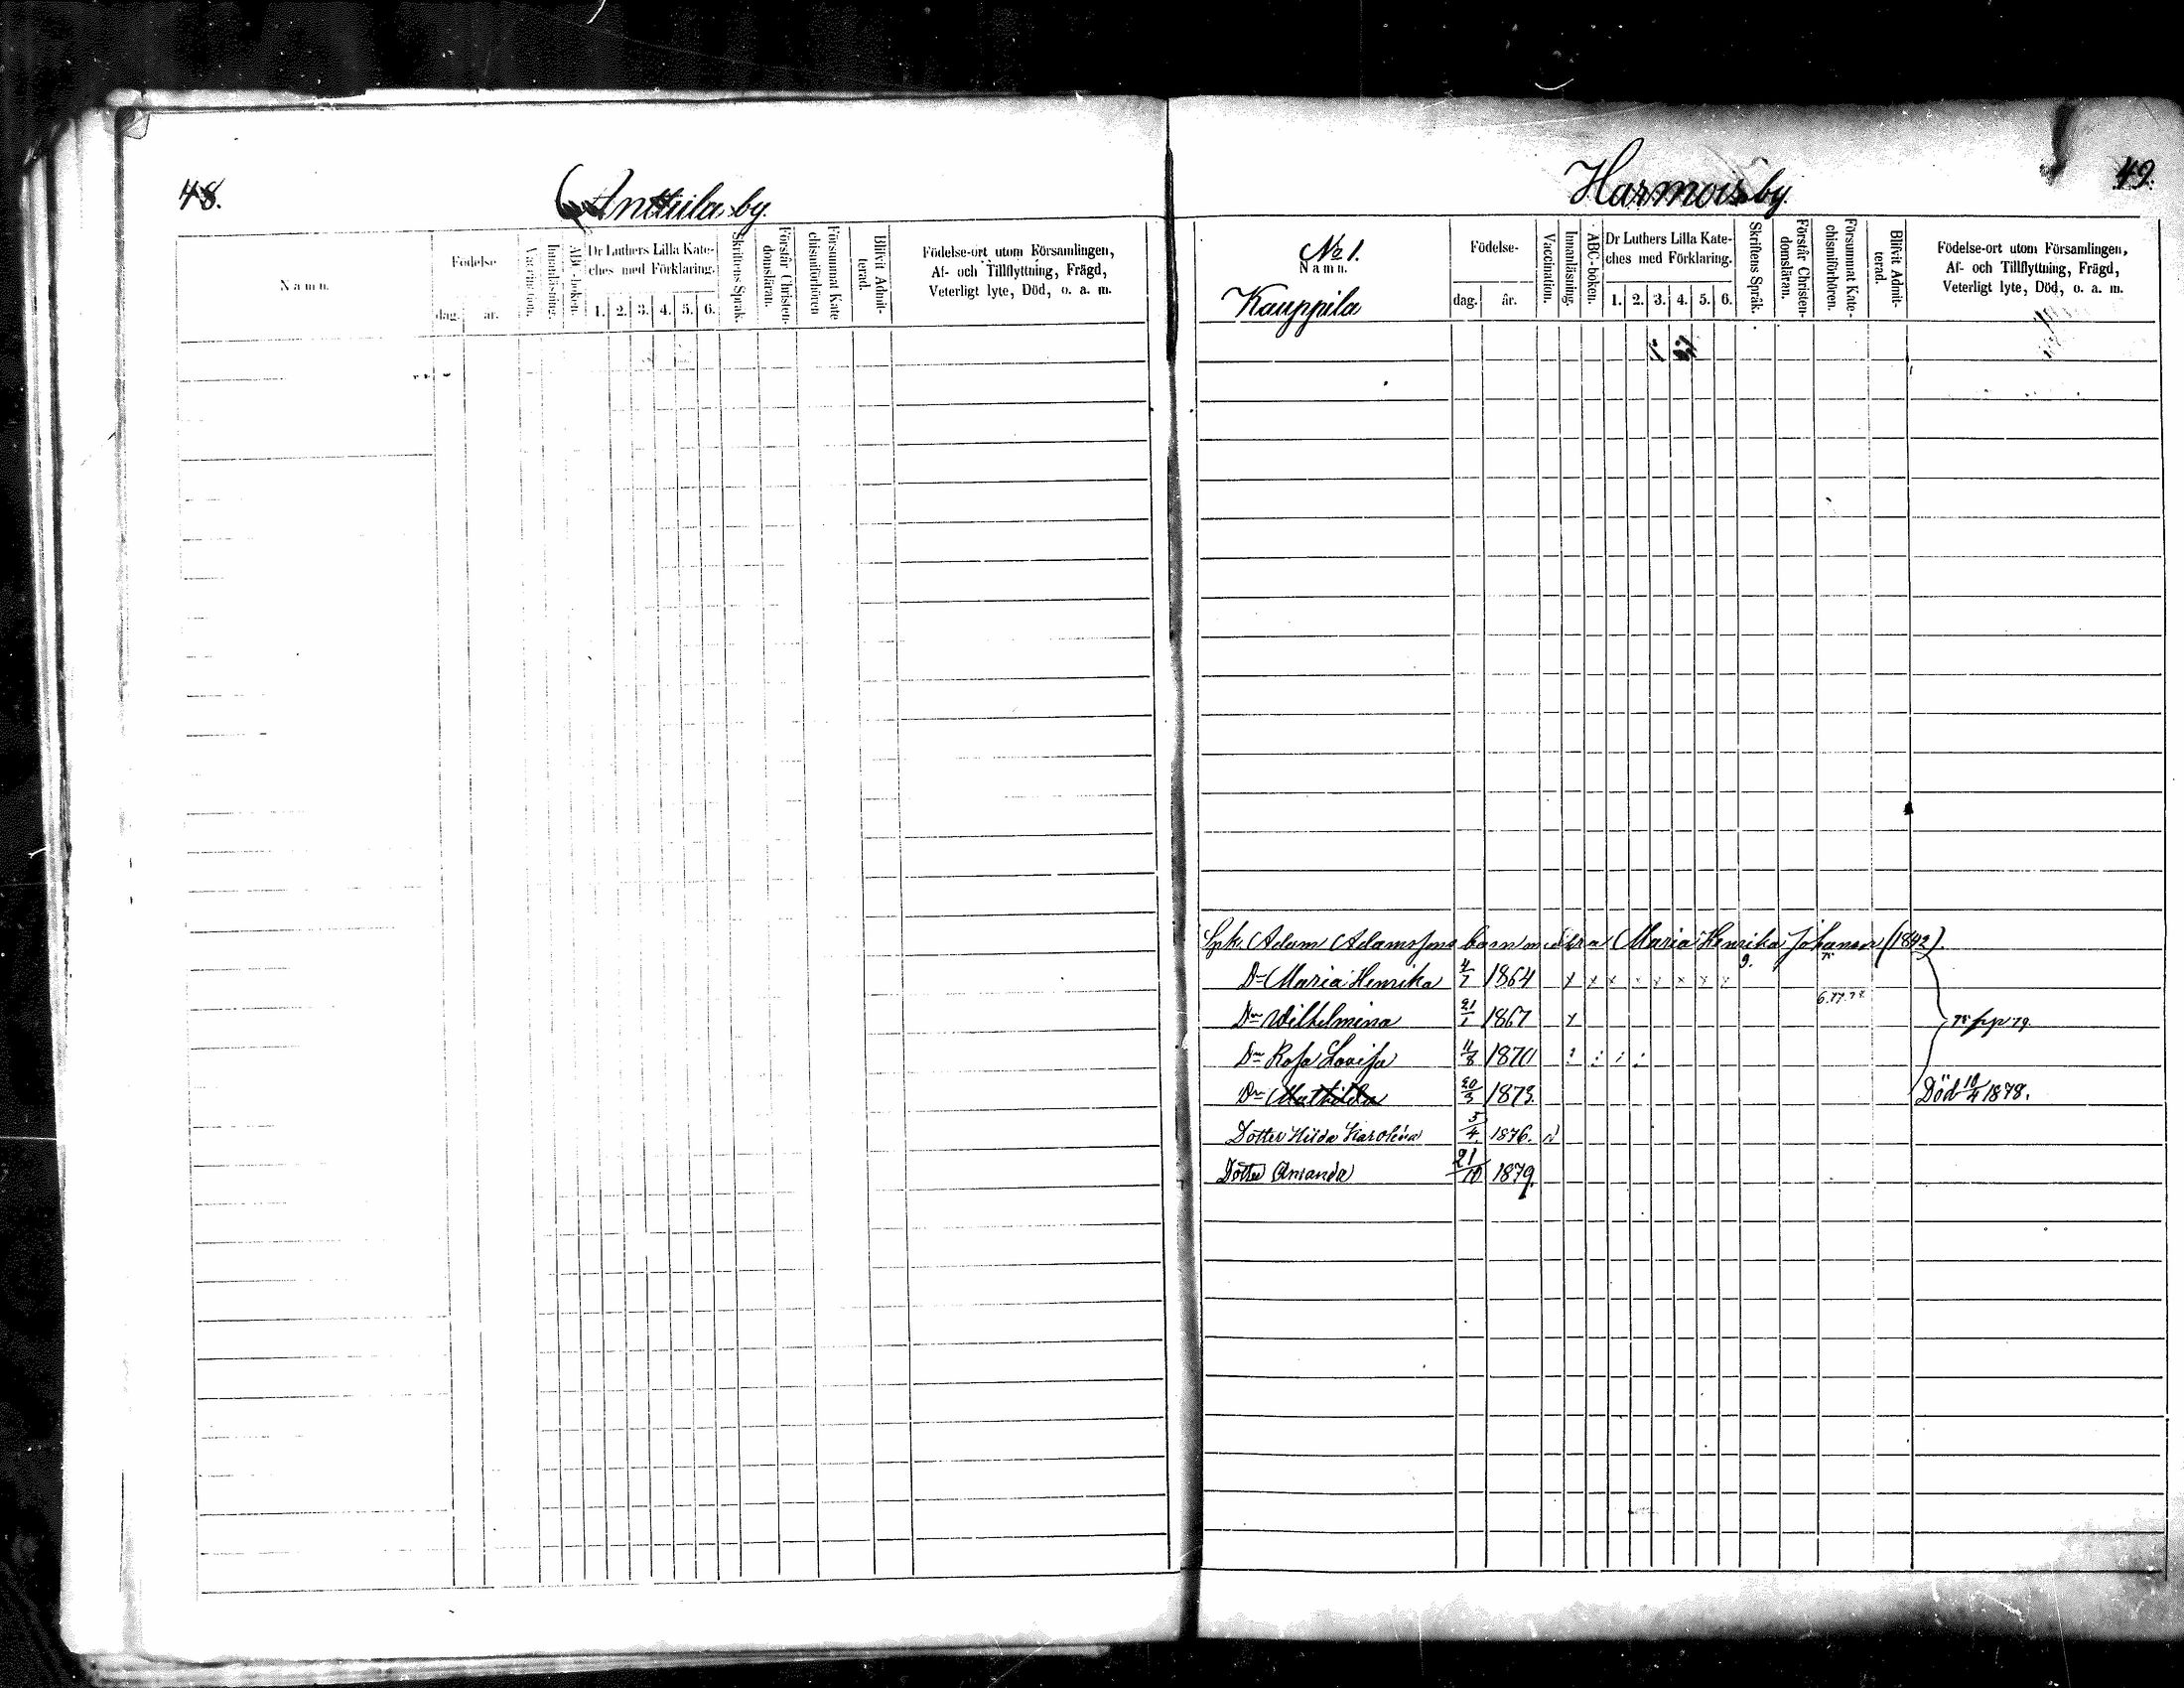 48.
Anttila by.
Namn.
Födelse
dag.
år.
Vaccination.
Innanläsning.
ABC-boken.
Dr Luthers Lilla Kate-
ches med Förklaring.
1. 2. 3. 4. 5. 6.
Skriftens Språk.
Förstår Christen-
domsläran.
Försummat Kate
chismiförhören
Blivit Admit-
terad.
Födelse-ort utom Församlingen,
Af- och Tillflyttning, Frägd,
Veterligt lyte, Död, o. a. m.
Harmois by.
49.
No 1.
Namn.
Kauppila
Födelse-
dag.
år.
Vaccination.
Innanläsning.
ABC-boken.
Dr Luthers Lilla Kate-
ches med Förklaring.
1. 2. 3. 4. 5. 6.
Skriftens Språk.
Förstår Christen-
domsläran.
Försummat Kate-
chismiförhören.
Blivit Admit-
terad.
Födelse-ort utom Församlingen,
Af- och Tillflyttning, Frägd,
Veterligt lyte, Död, o. a. m.
Adam Adamssons barn med Maria Henrika (1842)
Dr Maria Henrika 4/7 1864 x x x x x x x x
6.77.78
Dr Wilhelmina 21/1 1867 x
Dr Rosa Lovisa 11/8 1870
Dr Mathilda 20/3 1873. Död 10/4 1878.
Dotter Hilda Karolina 5/4. 1876.
Dotter Amanda 21/10 1879.